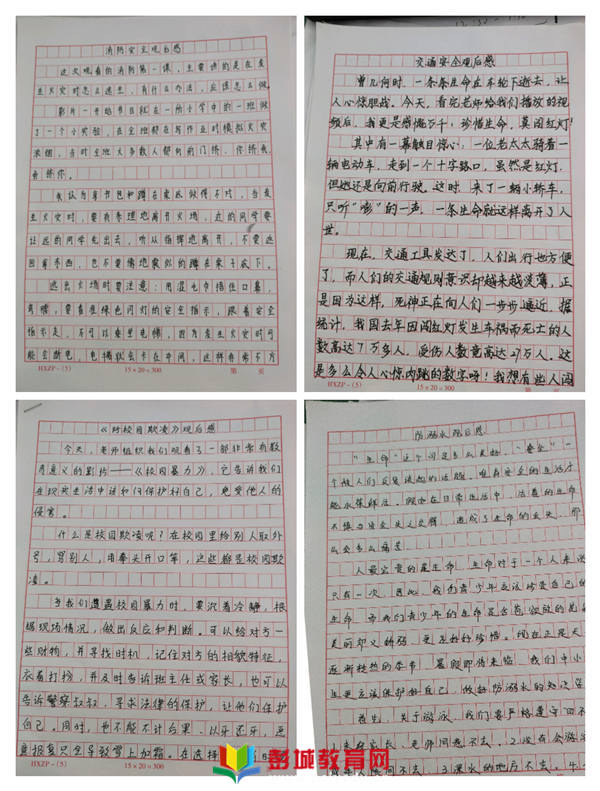 消防安全观后感
这次观看的消防第一课，主要讲的是在发
生火灾时怎么逃生，有什么办法，应该怎么做。
影片一开始节目组在一所小学中的一班做
了一个小实验，在全班都在写作业时模拟火灾
浓烟，当时全班大多数人都向前门挤，你挤我，
我挤你。
我认为拿书包和蹲在桌底做得不对，当发
生火灾时，要有条理地离开火场，近的同学要
让远的同学先出去，听从指挥地离开，不要返
回拿东西，也不要像地震似的蹲在桌子底下。
逃出火场时要注意：用湿毛巾捂住口鼻，
弯腰，要看着绿色闪灯的安全指示，跟着安全
指示走，不可以乘坐电梯，因为发生火灾时可
能会断电，电梯就会卡在中间，这样非常不方
HXZP-(5)
15×20=300
第 页
交通安全观后感
曾几何时，一条条生命在车轮下逝去，让
人心惊胆战。今天，看完老师给我们播放的视
频后，我更是感慨万千：珍惜生命，莫闯红灯！
其中有一幕触目惊心，一位老太太骑着一
辆电动车，走到一个十字路口，虽然是红灯，
但她还是向前行驶。这时，来了一辆小轿车，
只听“嘭”的一声，一条生命就这样离开了人
世。
现在，交通工具发达了，人们出行也方便
了，而人们的交通规则意识却越来越淡薄，正
是因为这样，死神正在向人们一步步逼近。据
统计，我国去年因闯红灯发生车祸而死亡的人
数高达7万多人，受伤人数竟高达27万人。这
是多么令人心惊肉跳的数字呀！我想有些人闯
HXZP-(5)
15×20=300
第 页
《对校园欺凌》观后感
今天，老师组织我们观看了一部非常有教
育意义的影片——《校园暴力》，它告诉我们
在现实生活中该如何保护好自己，免受他人的
侵害。
什么是校园欺凌呢？在校园里给别人取外
号，骂别人，用拳头开口等，这些都是校园欺
凌。
当我们遭遇校园暴力时，要沉着冷静，根
据现场情况，做出反应和判断。可以给对方一
些财物，并寻找时机，记住对方的相貌特征，
衣着打扮，并及时告诉班主任或家长，也可以
告诉警察叔叔，寻求法律的保护，让他们保护
自己。同时，也不能不计后果，以牙还牙，恶
意报复只会导致雪上加霜。在选择
HXZP-(5)
15×20=300
防溺水观后感
“生命”这个词是多么美好，“安全”一
个被人们反复谈起的话题，唯有安全的生活才
人最宝贵的是生命，生命对于一个人来说
只有一次，因此，我们青少年应该珍爱自己的
生命，而我们青少年的生命是含苞欲放的花
逐渐炎热的季节，暑假即将来临，我们中小
生更应该保护好自己，做好防溺水的知识
首先，关于游泳，我们要严格遵守四不
彭城教育网